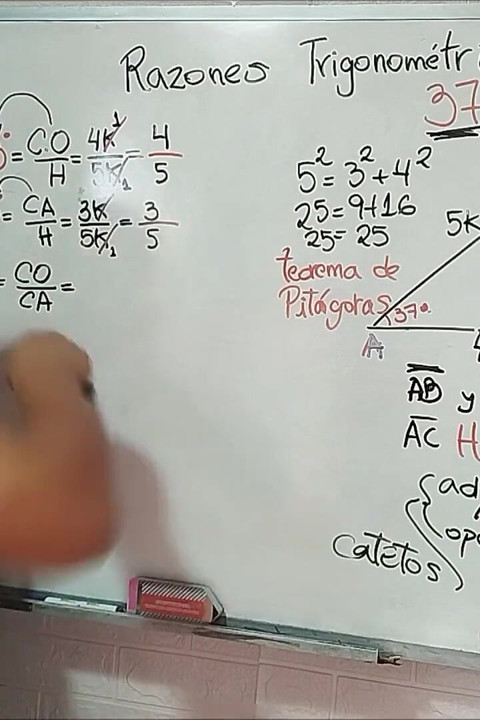 Razones Trigonométri
37
° = C.O/H = 4K/5K = 4/5
= CA/H = 3K/5K = 3/5
= CO/CA =
5² = 3² + 4²
25 = 9+16
25 = 25
teorema de
Pitágoras
5K
37°
A
AB y
AC H
catetos
{ad
opo